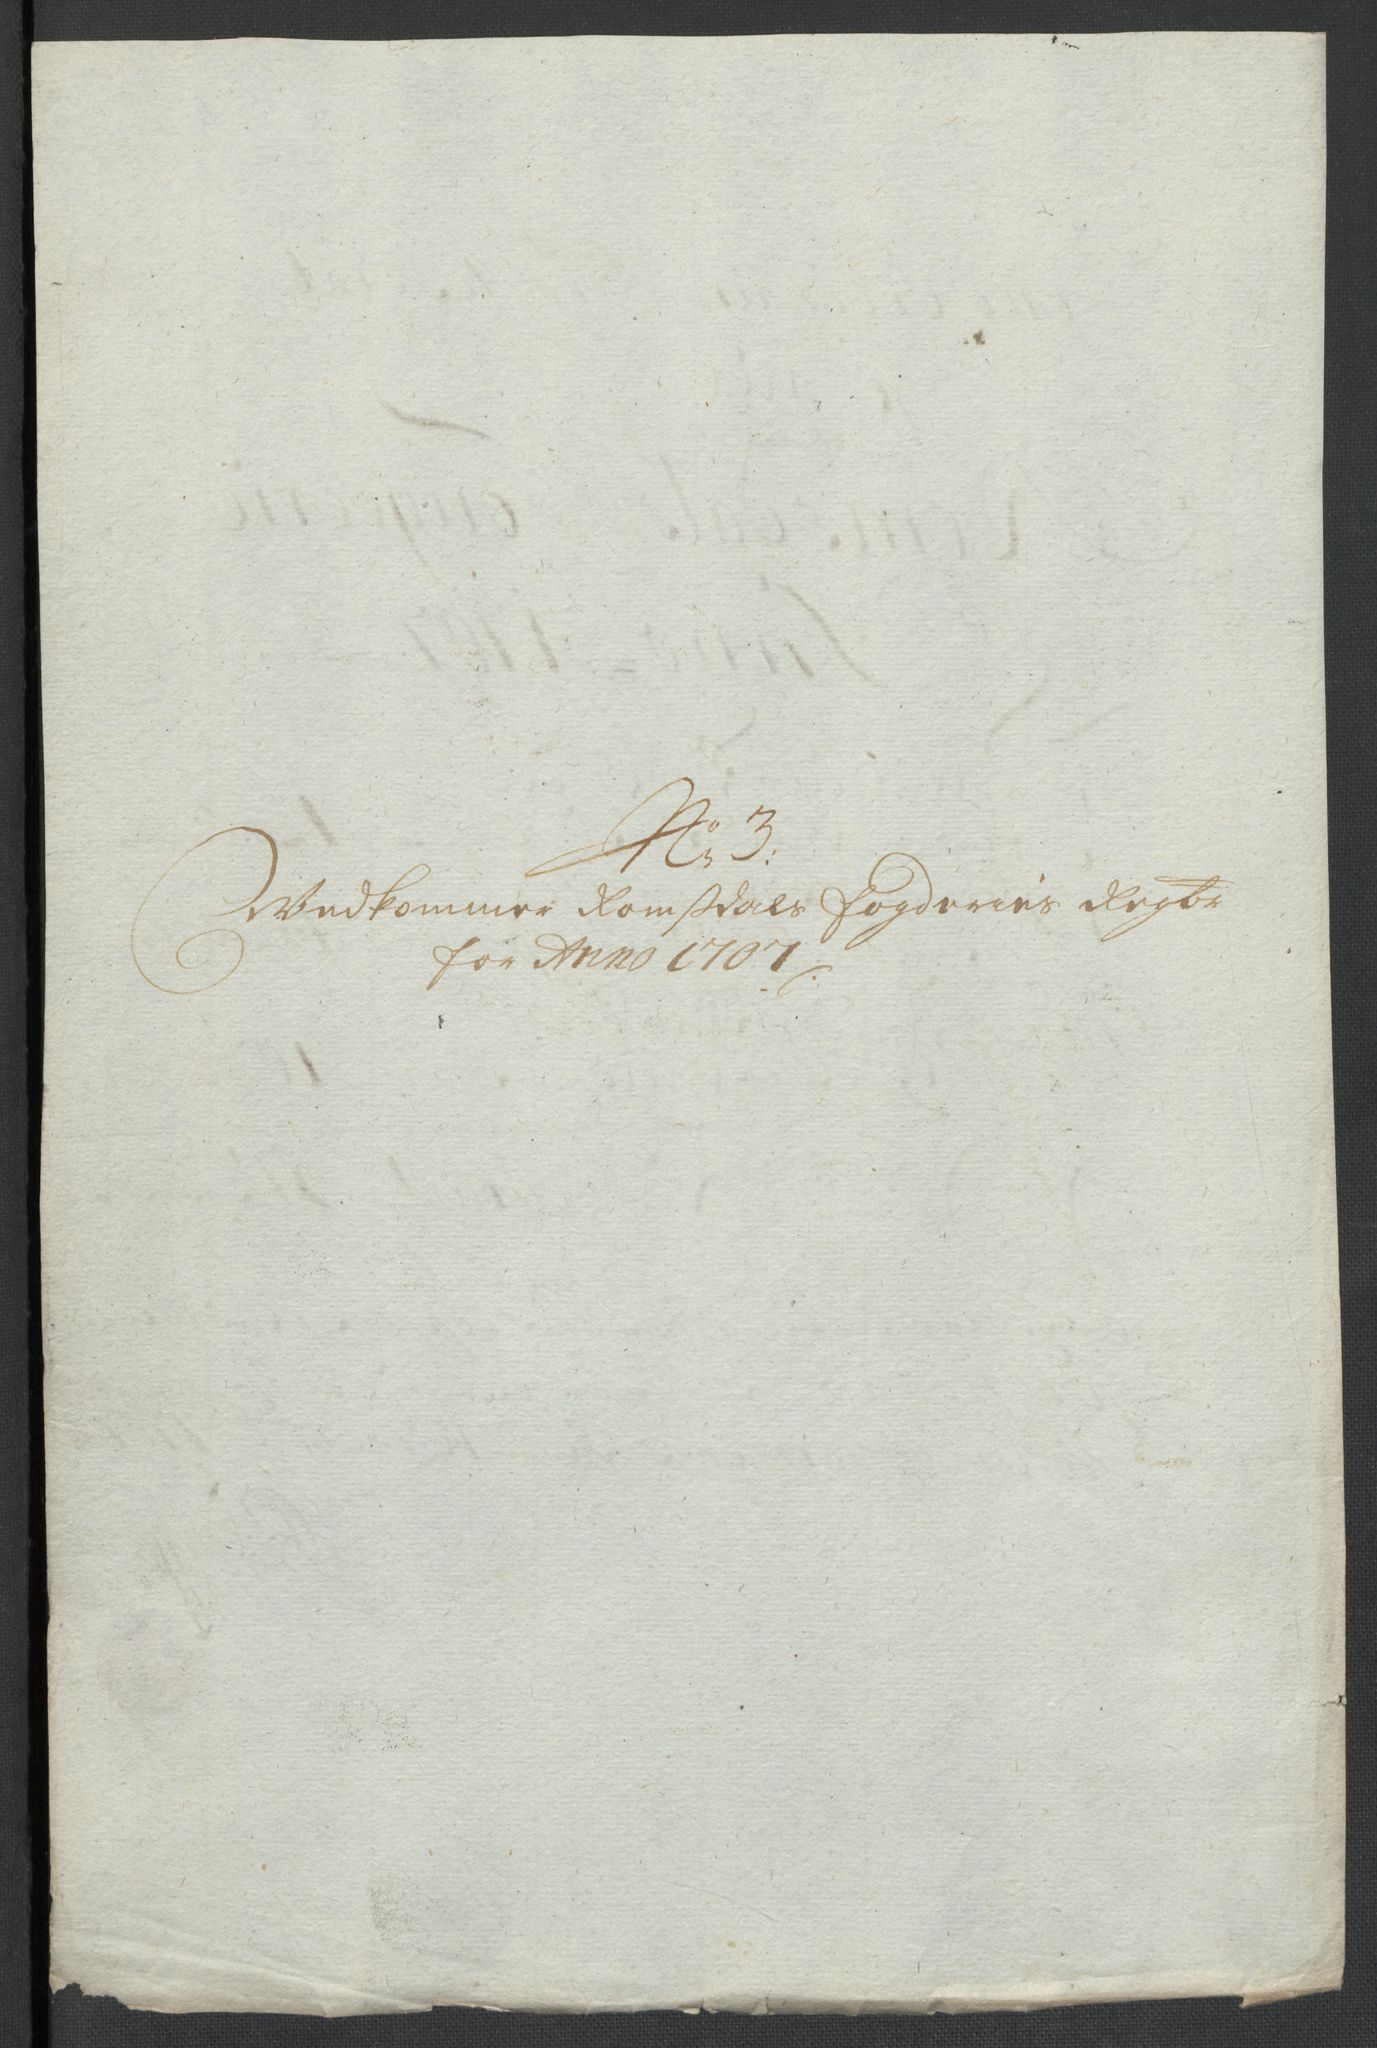 No 3.
Vedkommer Romsdals fogderies Regbr
for Anno 1707